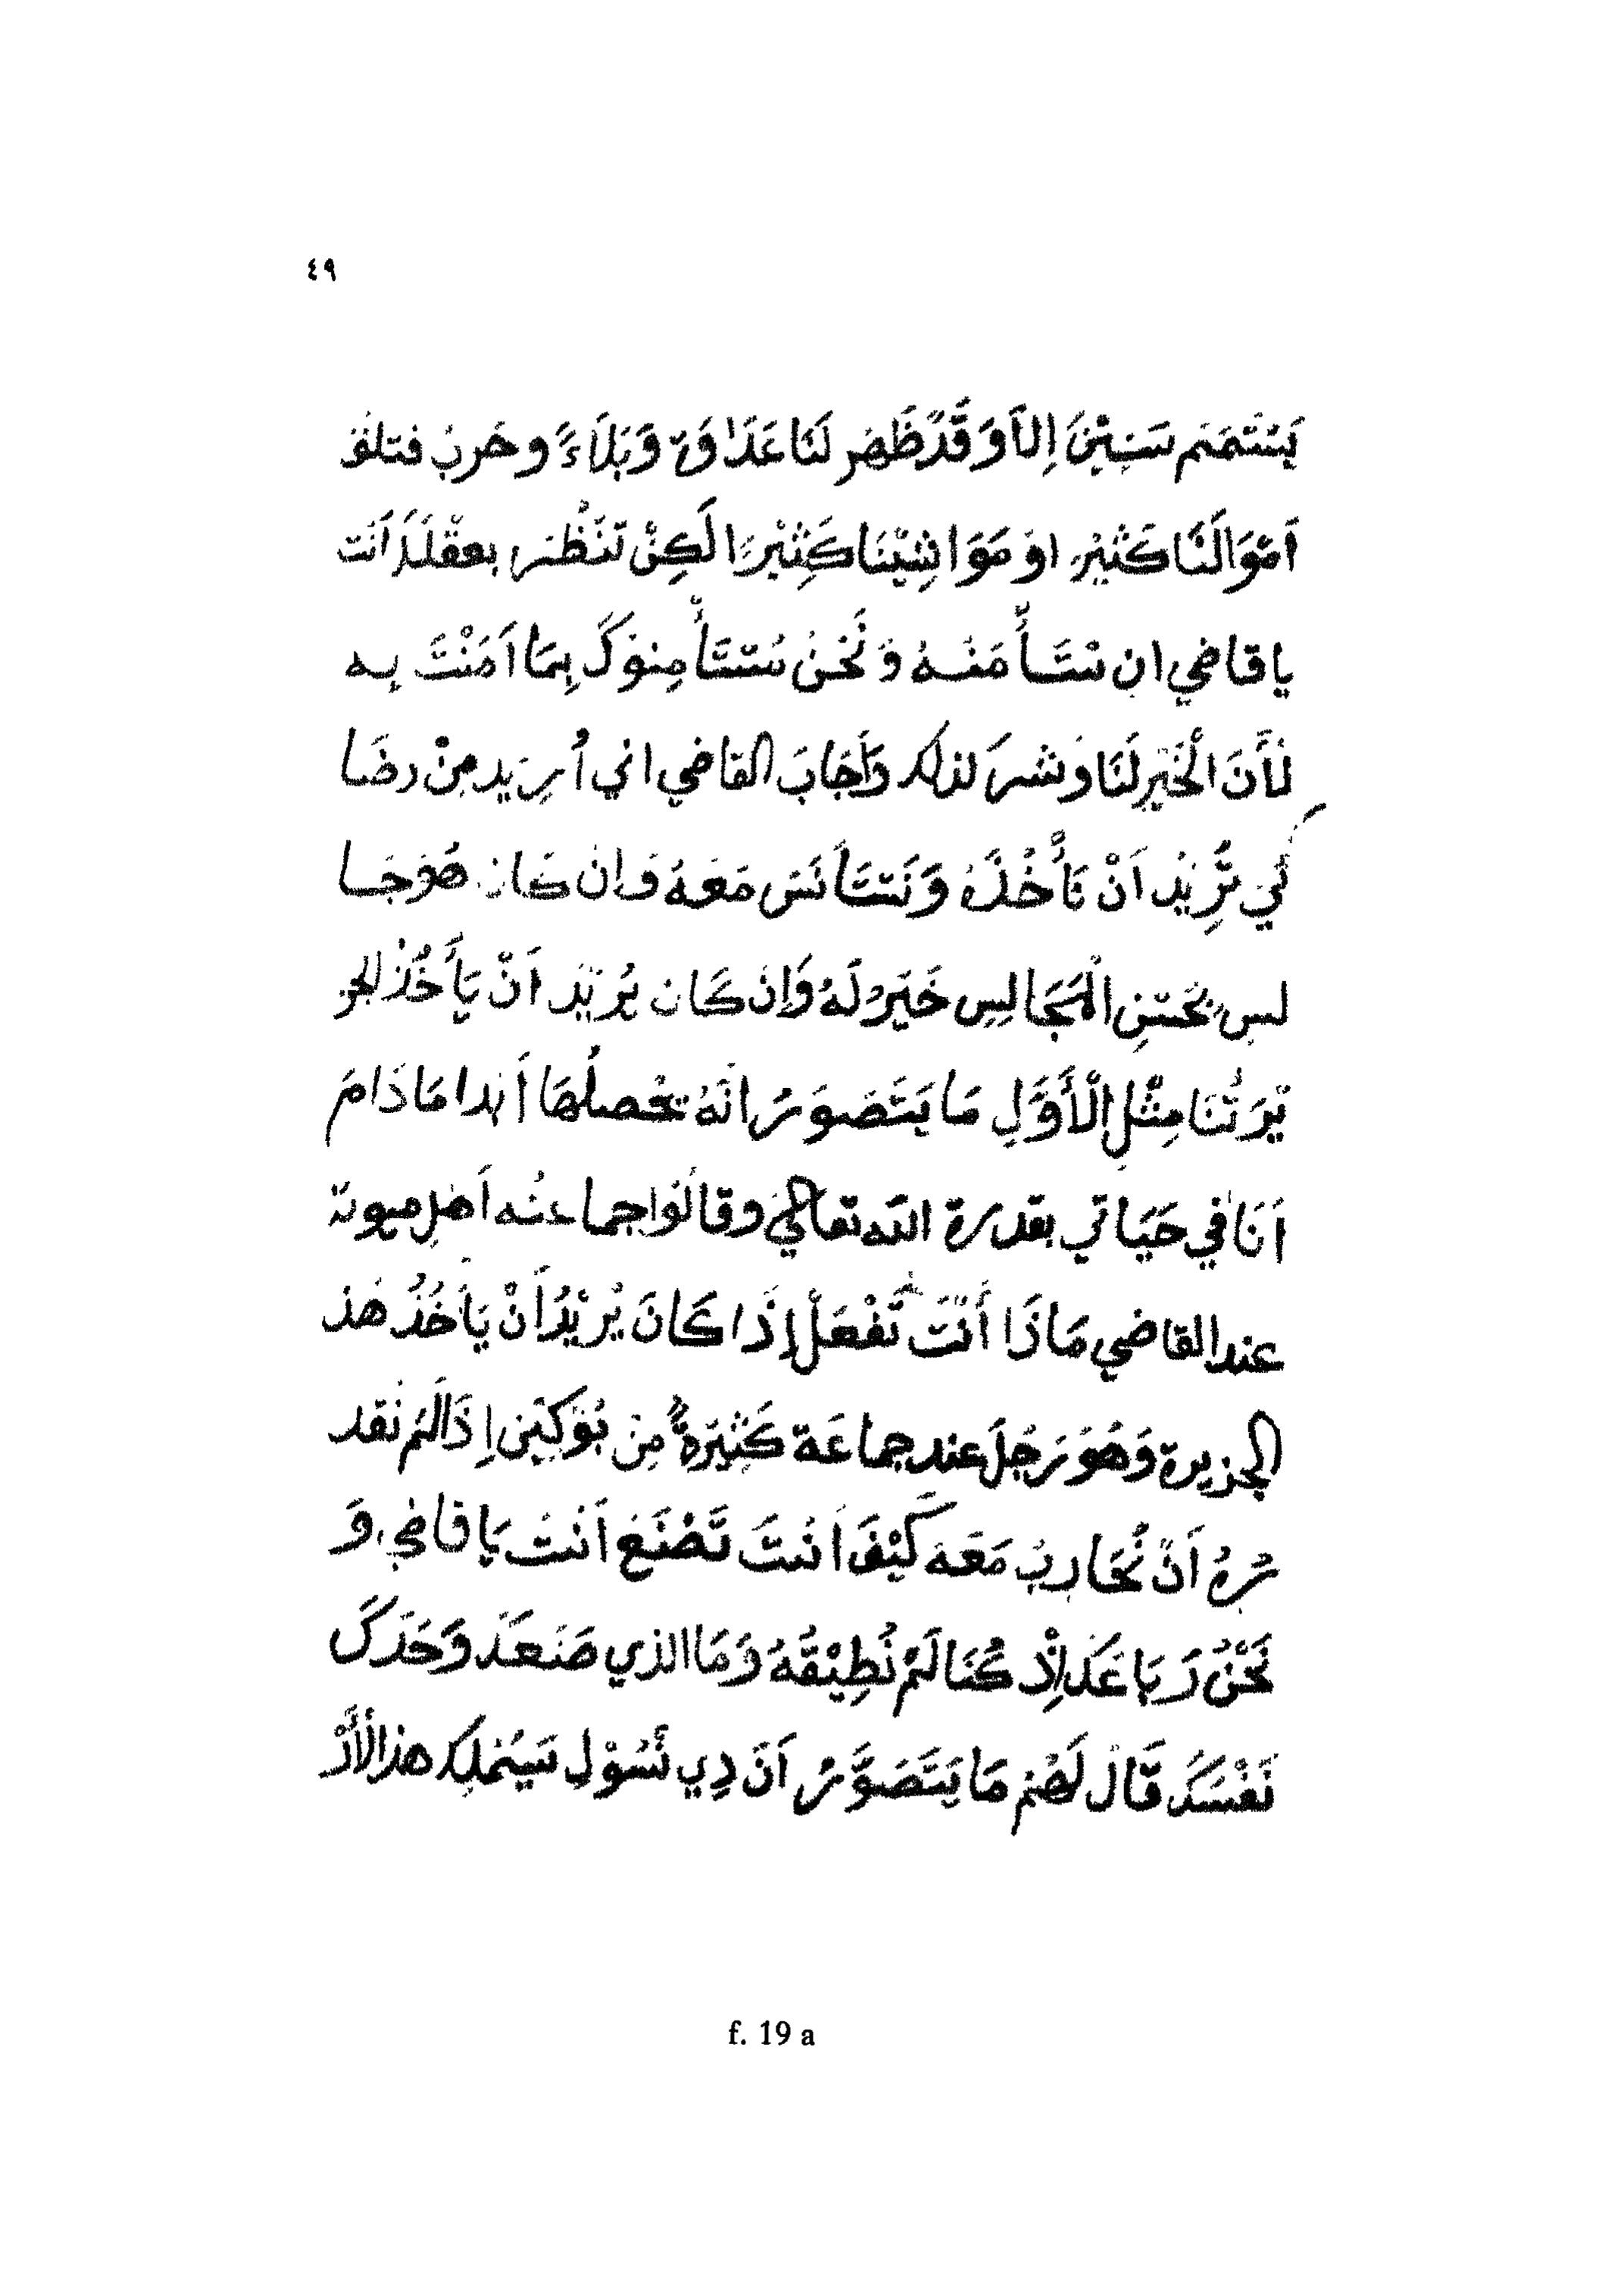 ٤٩
يَسْتَمْتَمْ سَنِيْنَ اِلاَّ وَقَّدْ ظَهَر لَنَا عَدَاوَةٌ وَبَلَاءً وحَربُ فتلف
اَمْوَالَنَا كَثِيْر اوْ مَوَاشِيْنَا كَثِيْرًا لَكِنْ تَنْظُر بعقْلَكَ اَنْت
يا قاضي ان نَسْتَأْمَنَهُ وَنَحْنُ نَسْتَأْمِنوْكَ بِمَا اَمَنْتَ بِه
لأَنَ الْخَيْرِ لَنَا وَشرَ لذلك وَاَجَابَ القاضي اني أُرِيَدِ مِنْ رضَا
كَي تُرِيْدُ اَنْ تَأْخُذَهُ وَنَسْتَأْنَسَ مَعَهُ وَانْ كَانَ هُوَ جَا
لس بحَسَنِ الْمَجَالِسِ خَيْرٌ لَهُ وَاِنْ كَان يُرِيْدُ اَنْ يَأْخُذُ الجز
يْرَتُنَا مِثْلِ الْأَوَّلِ مَا يَتَصَوَرُ انَّهُ تحْصلُهَا أَبَدا مَا دَامَ
اَنَا في حَيَاتي بقدرة الله تعالى وقالُوا جماعنُه اَهْلِ ميوتة
عند القاضي مَاذَا أَنْتَ تَفْعَلْ إِذَا كَانَ يُرِيْدُ أَنْ يَأْخُذُ هَذ
الجزيرة وَهُوَ رَجُلَ عند جماعَة كَثِيْرَةٌ مِنْ بُوْكِيْنِ إِذَا لَمْ نَقد
رُهُ اَنْ نُحَاربُ مَعَهُ كَيْفَ اَنْتَ تَصْنَعَ اَنْتَ يَا قاضِي وَ
نَحْنُ رَبَاعَكَ اِذْ كُنَا لَمْ نُطِيْقُهُ وَمَا الذي صَنَعَكَ وَحَدَكَ
نَفْسَكَ قَالَ لَهُمْ مَا يَتَصَوَّرُ اَنَ دِي نُسُوْلِ سَيَمْلِك هذ الْأَرْ
f. 19 a